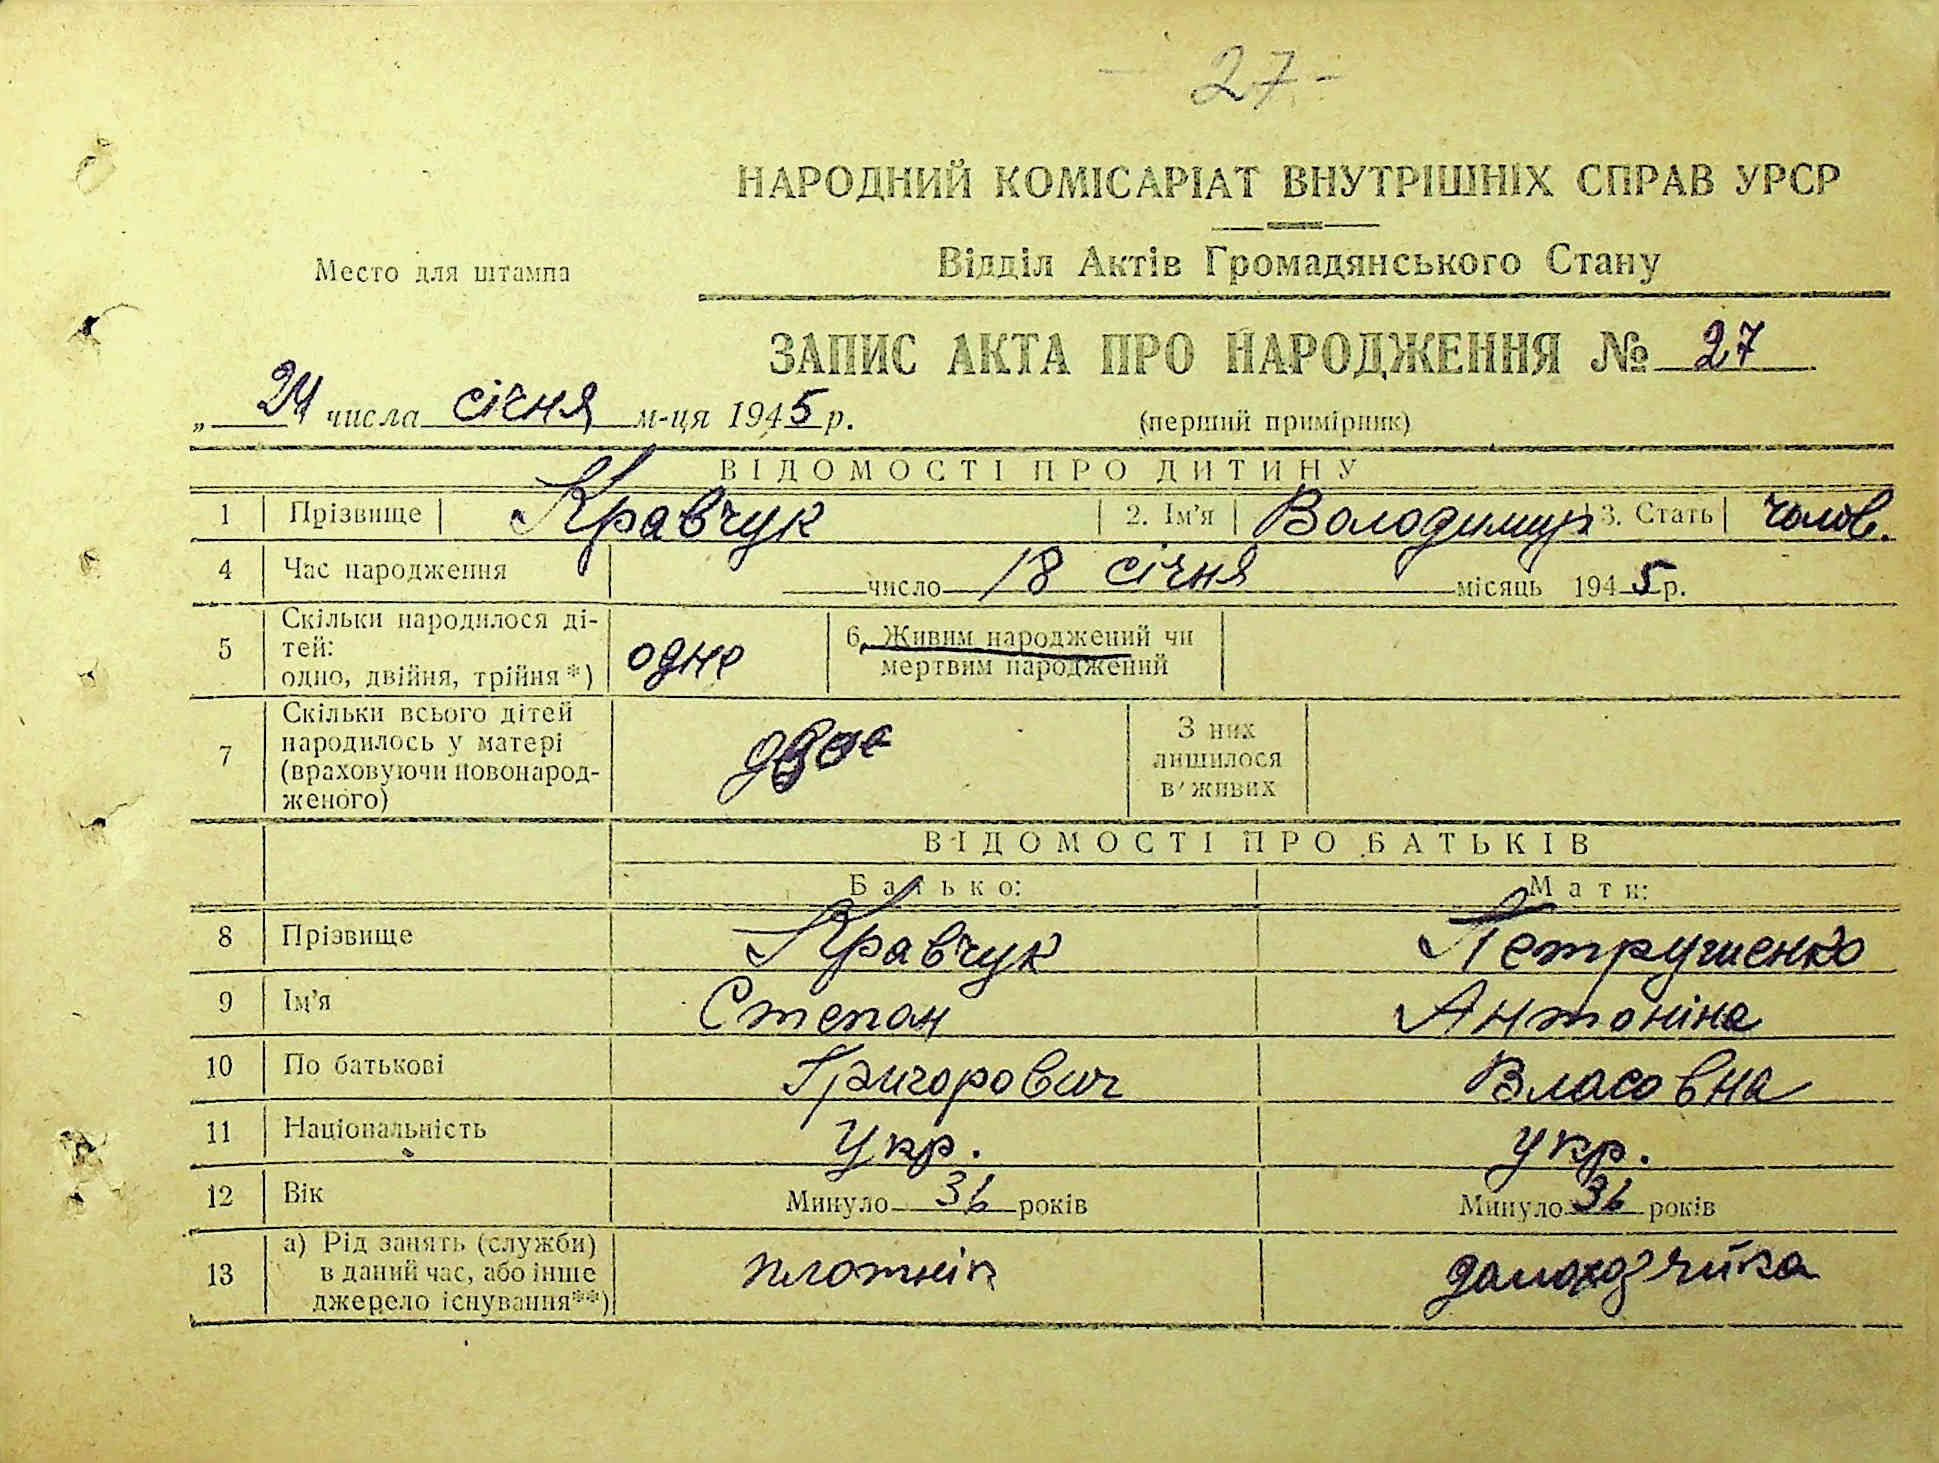 - 27 -
НАРОДНИЙ КОМІСАРІАТ ВНУТРІШНІХ СПРАВ УРСР
Відділ Актів Громадянського Стану
Место для штампа
ЗАПИС АКТА ПРО НАРОДЖЕННЯ № 27
„ 24 числа січня м-ця 1945 р.
(перший примірник)
ВІДОМОСТІ ПРО ДИТИНУ
1 Прізвище Кравчук 2. Ім'я Володимир 3. Стать чолов.
4 Час народження число 18 січня місяць 1945 р.
5 Скільки народилося ді-
тей:
одно, двійня, трійня *) одне
6. Живим народжений чи
мертвим народжений
7 Скільки всього дітей
народилось у матері
(враховуючи новонарод-
женого) двое
З них
лишилося
в' живих
ВІДОМОСТІ ПРО БАТЬКІВ
Батько: Мати:
8 Прізвище Кравчук Петрушенко
9 Ім'я Степан Антоніна
10 По батькові Григорович Власовна
11 Національність Укр. Укр.
12 Вік Минуло 36 років Минуло 36 років
13 а) Рід занять (служби)
в даний час, або інше
джерело існування**) плотнік